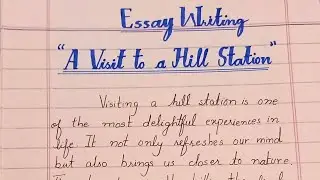 Essay Writing
"A Visit to a Hill Station"
Visiting a hill station is one
of the most delightful experiences in
life. It not only refreshes our mind
but also brings us closer to nature.